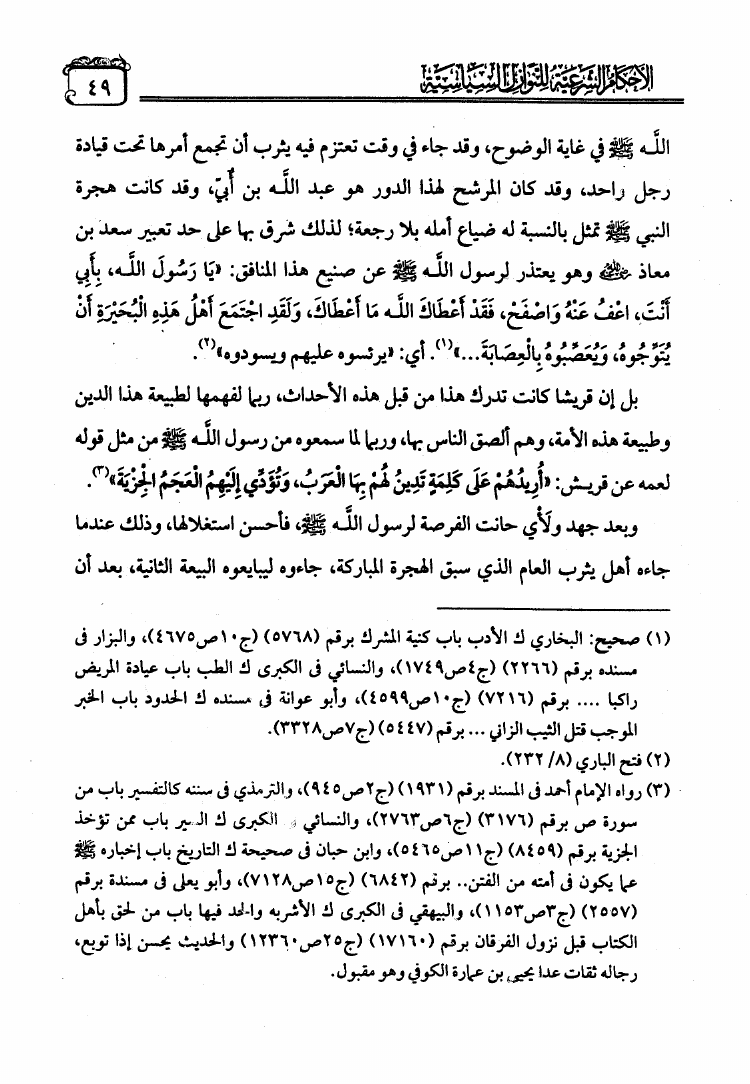 الأحكام الشرعية للنوازل السياسية
٤٩
اللَّه ﷺ في غاية الوضوح، وقد جاء في وقت تعتزم فيه يثرب أن تجمع أمرها تحت قيادة
رجل واحد، وقد كان المرشح لهذا الدور هو عبد اللَّه بن أُبيّ، وقد كانت هجرة
النبي ﷺ تمثل بالنسبة له ضياع أمله بلا رجعة؛ لذلك شرق بها على حد تعبير سعد بن
معاذ رضي الله عنه وهو يعتذر لرسول اللَّه ﷺ عن صنيع هذا المنافق: «يَا رَسُولَ اللَّه، بِأَبِي
أَنْتَ، اعْفُ عَنْهُ وَاصْفَحْ، فَقَدْ أَعْطَاكَ اللَّه مَا أَعْطَاكَ، وَلَقَدِ اجْتَمَعَ أَهْلُ هَذِهِ الْبُحَيْرَةِ أَنْ
يُتَوِّجُوهُ، وَيُعَصِّبُوهُ بِالْعِصَابَةَ...»(١). أي: «يرئسوه عليهم ويسودوه»(٢).
بل إن قريشا كانت تدرك هذا من قبل هذه الأحداث، ربما لفهمها لطبيعة هذا الدين
وطبيعة هذه الأمة، وهم ألصق الناس بها، وربما لما سمعوه من رسول اللَّه ﷺ من مثل قوله
لعمه عن قريش: «أُرِيدُهُمْ عَلَى كَلِمَةٍ تَدِينُ لَهُمْ بِهَا الْعَرَبُ، وَتُؤَدِّي إِلَيْهِمُ الْعَجَمُ الْجِزْيَةَ»(٣).
وبعد جهد ولَأْي حانت الفرصة لرسول اللَّه ﷺ، فأحسن استغلالها، وذلك عندما
جاءه أهل يثرب العام الذي سبق الهجرة المباركة، جاءوه ليبايعوه البيعة الثانية، بعد أن
(١) صحيح: البخاري ك الأدب باب كنية المشرك برقم (٥٧٦٨) (ج١٠ص٤٦٧٥)، والبزار فى
مسنده برقم (٢٢٦٦) (ج٤ص١٧٤٩)، والنسائي فى الكبرى ك الطب باب عيادة المريض
راكبا .... برقم (٧٢١٦) (ج١٠ص٤٥٩٩)، وأبو عوانة فى مسنده ك الحدود باب الخبر
الموجب قتل الثيب الزاني ... برقم (٥٤٤٧) (ج٧ص٣٣٢٨).
(٢) فتح الباري (٨/ ٢٣٢).
(٣) رواه الإمام أحمد فى المسند برقم (١٩٣١) (ج٢ص٩٤٥)، والترمذي فى سننه كالتفسير باب من
سورة ص برقم (٣١٧٦) (ج٦ص٢٧٦٣)، والنسائي فى الكبرى ك السير باب ممن تؤخذ
الجزية برقم (٨٤٥٩) (ج١١ص٥٤٦٥)، وابن حبان فى صحيحة ك التاريخ باب إخباره ﷺ
عما يكون فى أمته من الفتن.. برقم (٦٨٤٢) (ج١٥ص٧١٢٨)، وأبو يعلى فى مسندة برقم
(٢٥٥٧) (ج٣ص١١٥٣)، والبيهقي فى الكبرى ك الأشربه والحد فيها باب من لحق بأهل
الكتاب قبل نزول الفرقان برقم (١٧١٦٠) (ج٢٥ص١٢٣٦٠) والحديث يحسن إذا توبع،
رجاله ثقات عدا يحيى بن عمارة الكوفي وهو مقبول.